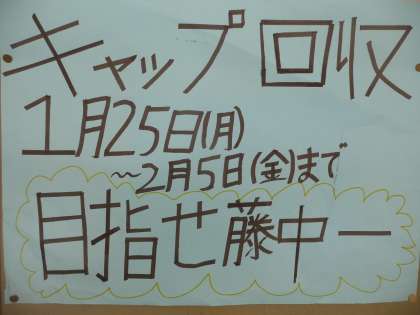 キャップ回収
1月25日(月)
～2月5日(金)まで
目指せ藤中一